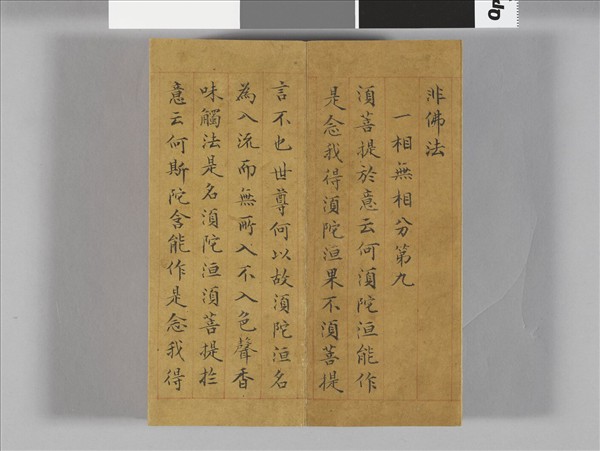 非佛法
一相無相分第九
須菩提於意云何須陀洹能作
是念我得須陀洹果不須菩提
言不也世尊何以故須陀洹名
為入流而無所入不入色聲香
味觸法是名須陀洹須菩提於
意云何斯陀含能作是念我得